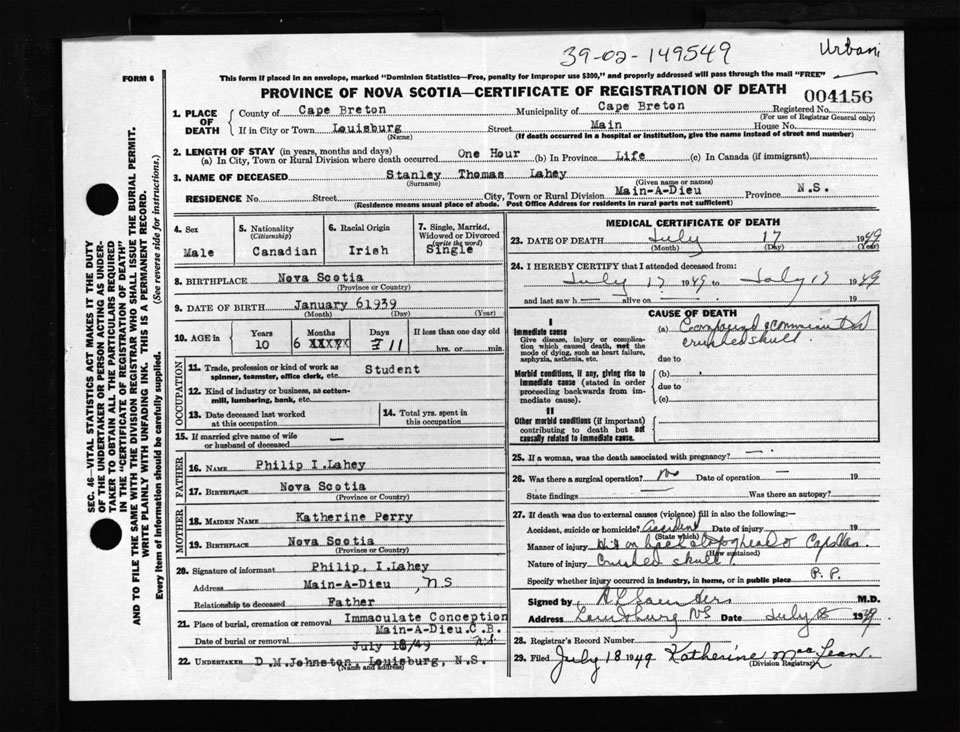 39-02-149549
Urban
FORM 6
This form if placed in an envelope, marked "Dominion Statistics—Free, penalty for improper use $300," and properly addressed will pass through the mail "FREE"
PROVINCE OF NOVA SCOTIA—CERTIFICATE OF REGISTRATION OF DEATH
004156
1. PLACE OF DEATH
County of Cape Breton Municipality of Cape Breton Registered No.
(For use of Registrar General only)
If in City or Town Louisburg Street Main House No.
(Name) (If death occurred in a hospital or institution, give the name instead of street and number)
2. LENGTH OF STAY (in years, months and days)
(a) In City, Town or Rural Division where death occurred One Hour (b) In Province Life (c) In Canada (if immigrant)
3. NAME OF DECEASED Stanley Thomas Lahey
(Surname) (Given name or names)
RESIDENCE No. Street City, Town or Rural Division Main-A-Dieu Province N.S.
(Residence means usual place of abode. Post Office Address for residents in rural parts not sufficient)
4. Sex Male
5. Nationality (Citizenship) Canadian
6. Racial Origin Irish
7. Single, Married, Widowed or Divorced (write the word) Single
8. BIRTHPLACE Nova Scotia
(Province or Country)
9. DATE OF BIRTH January 6 1939
(Month) (Day) (Year)
10. AGE in Years 10 Months 6 XXXX Days 11 If less than one day old
hrs. or min.
OCCUPATION
11. Trade, profession or kind of work as spinner, teamster, office clerk, etc. Student
12. Kind of industry or business, as cotton-mill, lumbering, bank, etc.
13. Date deceased last worked at this occupation
14. Total yrs. spent in this occupation
15. If married give name of wife or husband of deceased —
FATHER
16. NAME Philip I.Lahey
17. BIRTHPLACE Nova Scotia
(Province or Country)
MOTHER
18. MAIDEN NAME Katherine Perry
19. BIRTHPLACE Nova Scotia
(Province or Country)
20. Signature of informant Philip, I.Lahey
Address Main-A-Dieu , N S
Relationship to deceased Father
21. Place of burial, cremation or removal Immaculate Conception
Main-A-Dieu.C.B. N.S.
Date of burial or removal July 18/49
22. UNDERTAKER D.M.Johnston, Louisburg, N.S.
(Name and address)
MEDICAL CERTIFICATE OF DEATH
23. DATE OF DEATH July 17 1949
(Month) (Day) (Year)
24. I HEREBY CERTIFY that I attended deceased from:
July 17 1949 to July 17 1949
and last saw h — alive on — 19
CAUSE OF DEATH
I
Immediate cause
Give disease, injury or complication which caused death, not the mode of dying, such as heart failure, asphyxia, asthenia, etc.
(a) Compound comminuted
crushed skull.
due to
Morbid conditions, if any, giving rise to immediate cause (stated in order proceeding backwards from immediate cause).
(b)
due to
(c)
II
Other morbid conditions (if important) contributing to death but not causally related to immediate cause.
25. If a woman, was the death associated with pregnancy? —
26. Was there a surgical operation? No Date of operation — 19
State findings Was there an autopsy?
27. If death was due to external causes (violence) fill in also the following:—
Accident, suicide or homicide? Accident Date of injury 19
(State which)
Manner of injury Hit on back of head
(How sustained)
Nature of injury Crushed skull.
Specify whether injury occurred in industry, in home, or in public place P. P.
Signed by M.D.
Address Louisburg NS Date July 18 1949
28. Registrar's Record Number
29. Filed July 18 1949 Katherine MacLean
(Division Registrar)
SEC. 46—VITAL STATISTICS ACT MAKES IT THE DUTY
OF THE UNDERTAKER OR PERSON ACTING AS UNDER-
TAKER TO OBTAIN ALL THE PARTICULARS REQUIRED
IN THE "CERTIFICATE OF REGISTRATION OF DEATH"
AND TO FILE THE SAME WITH THE DIVISION REGISTRAR WHO SHALL ISSUE THE BURIAL PERMIT.
WRITE PLAINLY WITH UNFADING INK. THIS IS A PERMANENT RECORD.
Every item of information should be carefully supplied. (See reverse side for instructions.)